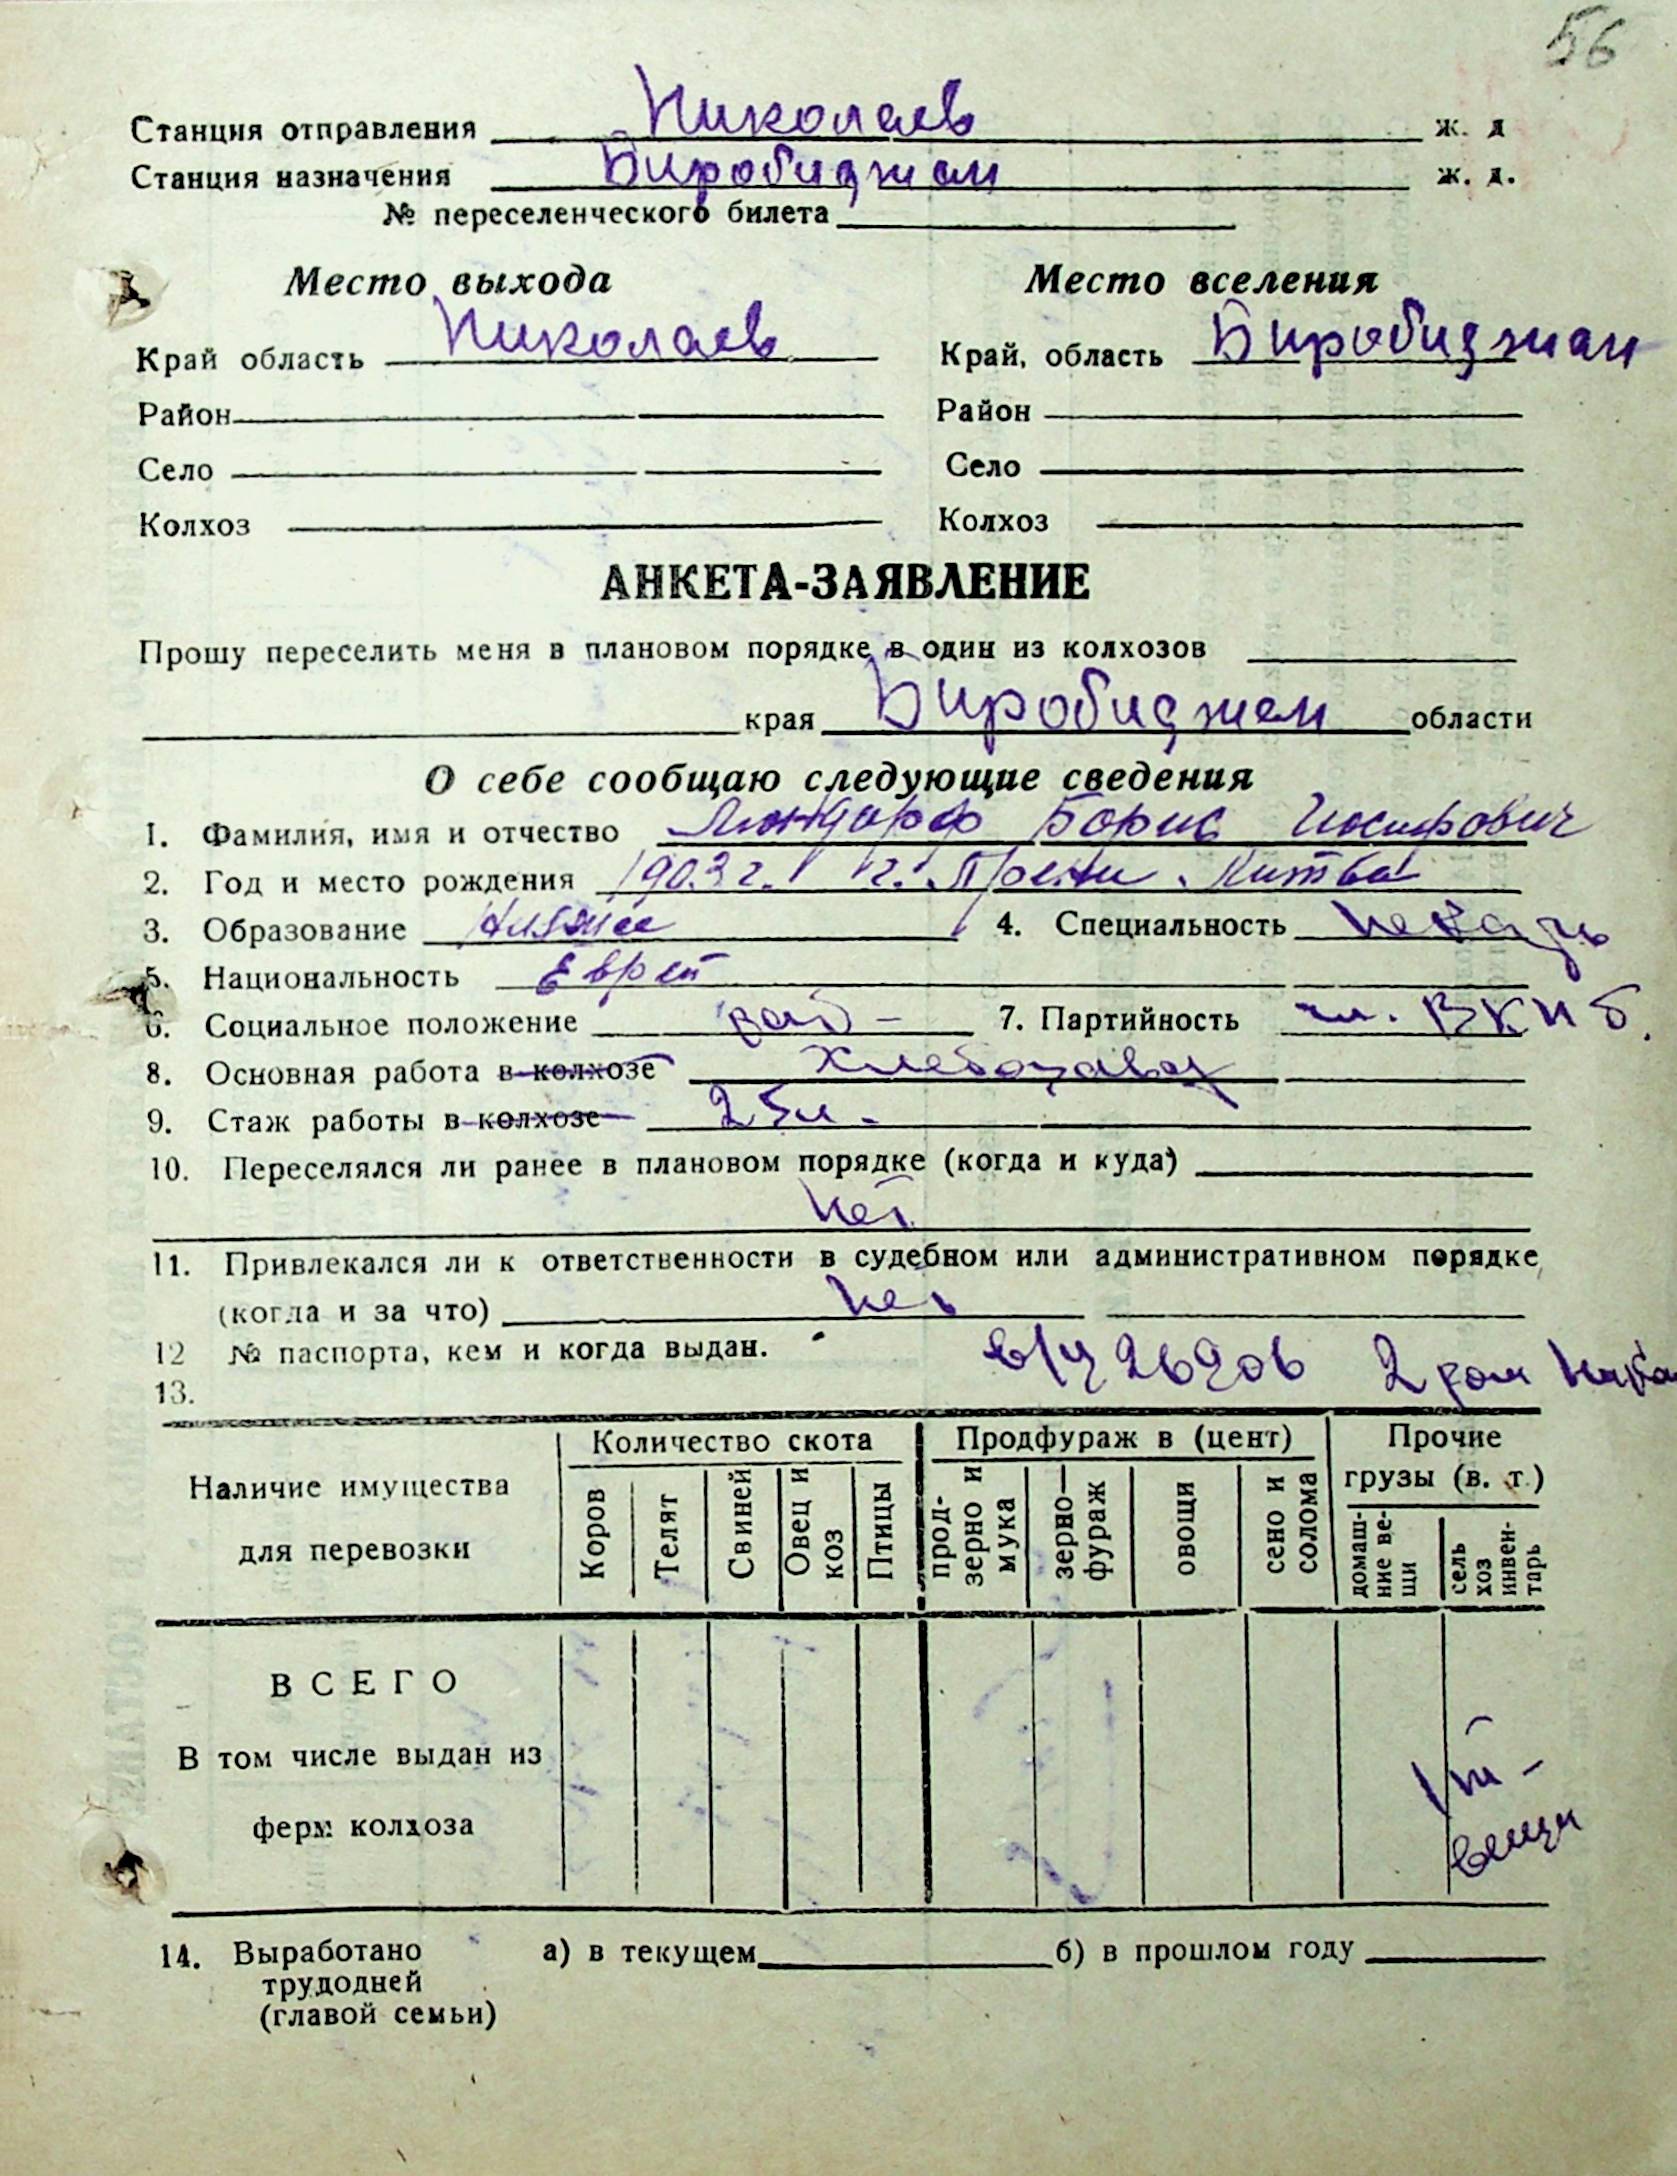 56
Станция отправления Николаев ж. д
Станция назначения Биробиджан ж. д.
№ переселенческого билета
Место выхода Место вселения
Край область Николаев Край, область Биробиджан
Район Район
Село Село
Колхоз Колхоз
АНКЕТА-ЗАЯВЛЕНИЕ
Прошу переселить меня в плановом порядке в один из колхозов
края Биробиджан области
О себе сообщаю следующие сведения
1. Фамилия, имя и отчество Борис Иосифович
2. Год и место рождения 1903 г. г. Прены Литва
3. Образование Низшее 4. Специальность пекарь
5. Национальность Еврей
6. Социальное положение раб- 7. Партийность чл. ВКПб.
8. Основная работа в колхозе Хлебозавод
9. Стаж работы в колхозе 25 л.
10. Переселялся ли ранее в плановом порядке (когда и куда)
Нет
11. Привлекался ли к ответственности в судебном или административном порядке
(когда и за что) Нет
12 № паспорта, кем и когда выдан. 2
13.
Наличие имущества для перевозки Количество скота Продфураж в (цент) Прочие грузы (в. т.)
Коров Телят Свиней Овец и коз Птицы прод-зерно и мука зерно—фураж овощи сено и солома домаш-ние ве-щи сель хоз инвен-тарь
ВСЕГО
В том числе выдан из
ферм колхоза
1т-
вещи
14. Выработано а) в текущем б) в прошлом году
трудодней
(главой семьи)